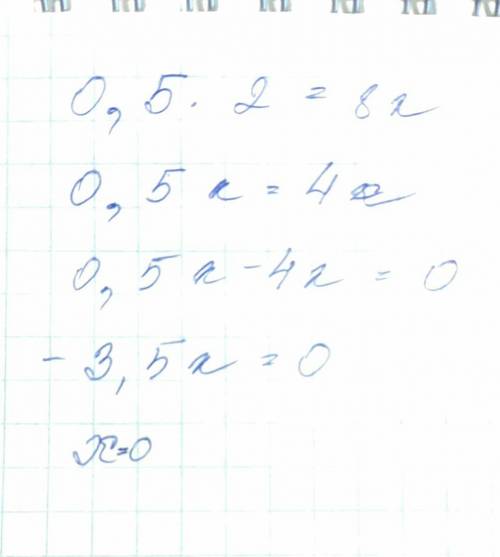 0,5 · 2 = 8x
0,5x = 4x
0,5x - 4x = 0
- 3,5x = 0
x=0